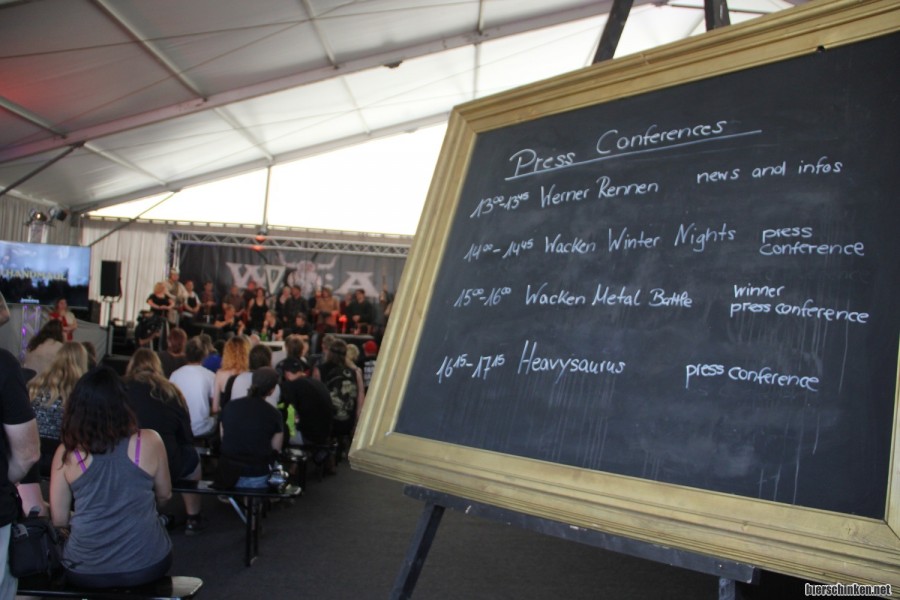 Press Conferences
13⁰⁰-13⁴⁵ Werner Rennen news and infos
14⁰⁰-14⁴⁵ Wacken Winter Nights press conference
15⁰⁰-16⁰⁰ Wacken Metal Battle winner press conference
16¹⁵-17¹⁵ Heavysaurus press conference
W:O:A
bierschinken.net